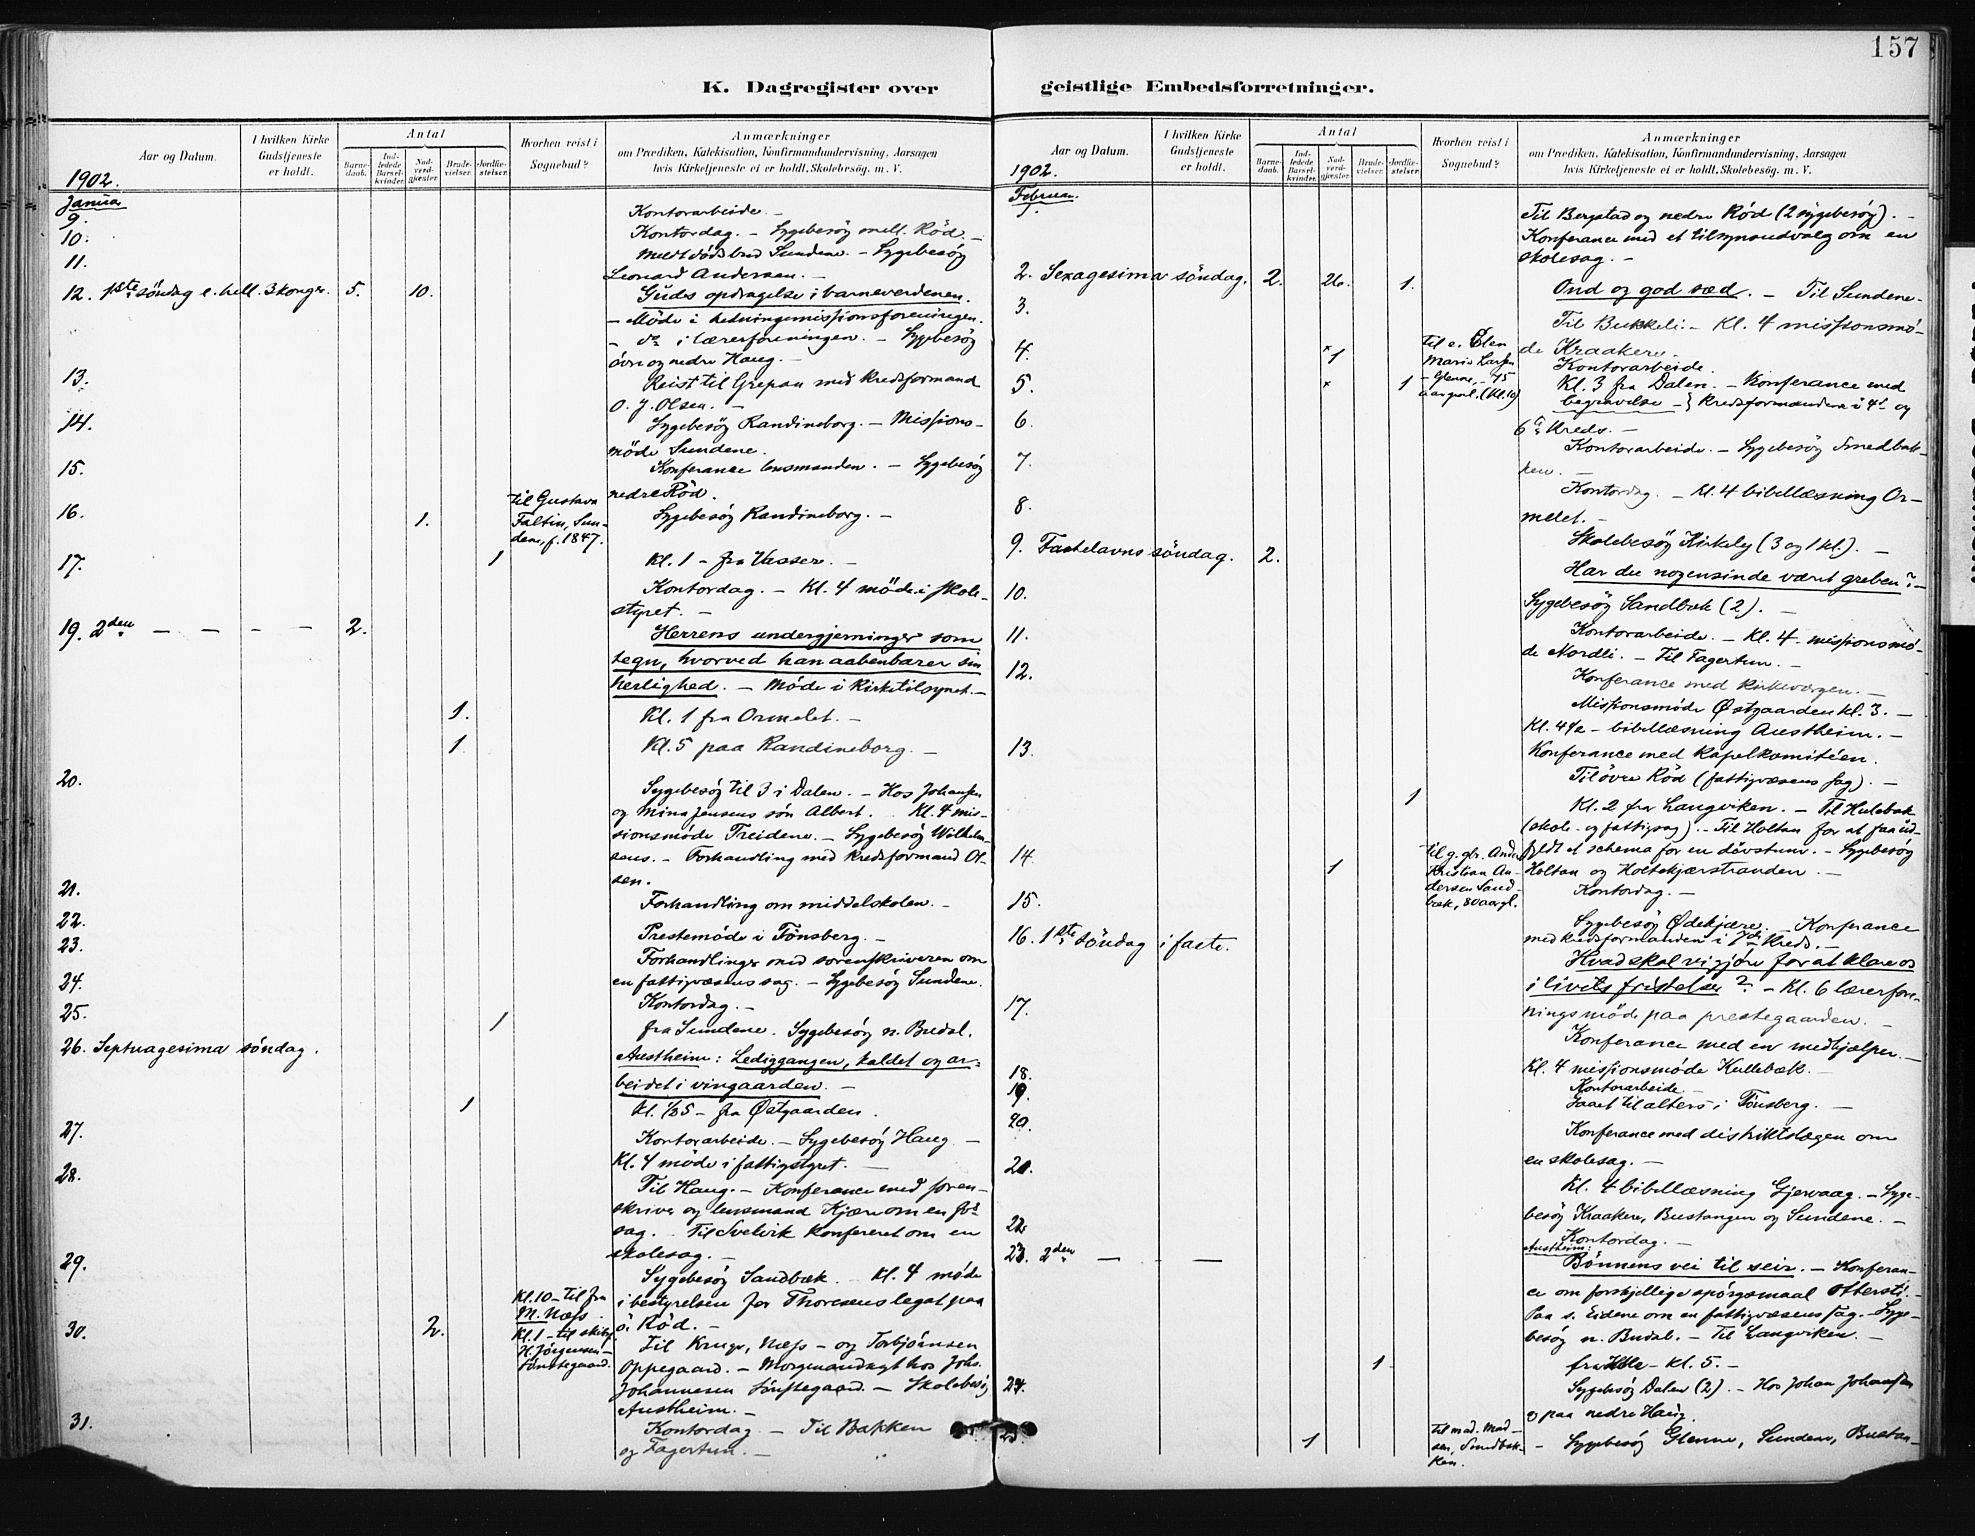 157
K. Dagregister over
Aar og Datum.
I hvilken Kirke Gudstjeneste er holdt.
Antal
Barnedaab.
Indledede Barselkvinder.
Nadverdgjæster.
Brudevielser.
Jordfæstelser.
Hvorhen reist i Sognebud?
Anmærkninger
om Prædiken, Katekisation, Konfirmandundervisning, Aarsagen
hvis Kirketjeneste ei er holdt, Skolebesøg. m. V.
1902.
Januar
9. Kontorarbeide. –
10. Kontordag. – Sygebesøg mell. Rød. –
11. Sundene. – Sygebesøg
Leonard Andersen. –
12. 1ste søndag e. hell. 3 konger. 5. 10. Guds opdragelse i barneverdenen.
– Møde i hedningemissionsforeningen.
– do i lærerforeningen. – Sygebesøg
øvre og nedre Haug. –
13. Reist til Grepan med kredsformand
O. J. Olsen. –
14. Sygebesøg Randineborg. – Missions-
møde Sundene. –
15. Konferance lensmanden. – Sygebesøg
nedre Rød.
16. 1. til Gustava
Faltin, Sun-
dene, f. 1847.
Sygebesøg Randineborg. –
17. 1 Kl. 1 – fra Vasser. –
Kontordag. – Kl. 4 møde i skole-
styret. –
19. 2den – – – – 2. Herrens undergjerninger som
tegn, hvorved han aabenbarer sin
herlighed. – Møde i kirketilsynet. –
1. Kl. 1 fra Ormelet. –
1. Kl. 5 paa Randineborg. –
20. Sygebesøg til 3 i Dalen. – Hos Johansen
og Mina Jensens søn Albert. Kl. 4 mis-
sionsmøde Treidene. – Sygebesøg Wilhelm-
sens. – Forhandling med kredsformand Ol-
sen.
21. Forhandling om middelskolen. –
22. Prestemøde i Tønsberg. –
23. Forhandlinger med sorenskriveren om
en fattigvæsens sag. – Sygebesøg Sundene.
24. Kontordag. –
25. 1 fra Sundene. Sygebesøg n. Budal.
26. Septuagesima søndag. Austheim: Lediggangen, kaldet og ar-
beidet i vingaarden. –
1 Kl. 1/2 5 – fra Østgaarden.
27. Kontorarbeide. – Sygebesøg Haug. –
Kl. 4 møde i fattigstyret. –
28. Til Haug. – Konferance med soren-
skriver og lensmand Kjær om en
sag. Til Svelvik konfereret om en
skolesag. –
29. Sygebesøg Sandbæk. – Kl. 4 møde
i bestyrelsen for Thoresens legat paa
ø. Rød. –
30. 2. Kl. 10 – til fra
M. Næss.
Kl. 1 – til
H. Jørgensen –
Til Kruge, Næss – og Torbjørnsen
Oppegaard. – Morgenandagt hos Johs.
Johannesen – Skolebesøg
Austheim. –
31. Kontordag – Til Bakken
og Fagertun. –
geistlige Embedsforretninger.
Aar og Datum.
I hvilken Kirke Gudstjeneste er holdt.
Antal
Barnedaab.
Indledede Barselkvinder.
Nadverdgjæster.
Brudevielser.
Jordfæstelser.
Hvorhen reist i Sognebud?
Anmærkninger
om Prædiken, Katekisation, Konfirmandundervisning, Aarsagen
hvis Kirketjeneste ei er holdt, Skolebesøg. m. V.
1902.
Februar.
1. Til Bergstad og nedre Rød (2 sygebesøg). –
Konferance med et tilsynsudvalg om en
skolesag. –
2. Sexagesima søndag. 2. 26. 1. Ond og god sæd. – Til Sundene.
3. Til Bukkeli. – Kl. 4 missionsmø-
de Kraakere.
4. × 1 til e. Elen
Marie Larsen
– Glenne, – 75
aar gml. (Kl. 10)
Kontorarbeide.
5. × 1 Kl. 3 fra Dalen. – Konferance med
begravelse – } kredsformændene i 4de og
6te kreds. –
6. Kontorarbeide. – Sygebesøg Smedbak-
ken. –
7. Kontordag. – Kl. 4 bibellæsning Or-
melet. –
8. Skolebesøg Kirkely (3 og 1 kl.). –
9. Fastelavns søndag. 2. Har du nogensinde været greben? –
Sygebesøg Sandbæk (2). –
10. Kontorarbeide. – Kl. 4 – missionsmø-
de Nordli. – Til Fagertun. –
11. Konferance med kirkevergen. –
12. Missionsmøde Østgaarden kl. 3. –
Kl. 4 1/2 – bibellæsning Austheim. –
Konferance med kapelkomitéen.
13. Til øvre Rød (fattigvæsens sag). –
1 Kl. 2 fra Langviken. – Til Hulebak
(skole- og fattigsag). – Til Holtan for at faa ud-
fyldt et schema for en døvstum. – Sygebesøg
Holtan og Holtekjærstranden. –
14. 1 til g. gbr. Anders
Kristian An-
dersen Sand-
bæk, 80 aar gl.
Kontordag. –
15. Sygebesøg Ødekjære. – Konferance
med kredsformanden i 7de kreds. –
16. 1ste søndag i faste. Hvad skal vi gjøre for at klare os
i livets fristelser? – Kl. 6 lærerfore-
ningsmøde paa prestegaarden. –
17. Konferance med en medhjælper. –
Kl. 4 missionsmøde Hullebæk. –
18. Kontorarbeide –
19. til alters i Tønsberg. –
20. Konferance med distriktslægen om
en skolesag. –
21. Kl. 4 bibellæsning Gjervaag. – Syge-
besøg Kraakere, Bustangen og Sundene. –
22. Kontordag. –
23. 2den – – Austheim:
Bønnens vei til seir. – Konferan-
ce om forskjellige spørgsmaal Ottersti. –
Paa s. Eidene om en fattigvæsens sag. – Syge-
besøg n. Budal. – Til Langviken. –
1 fra Hvale – kl. 5. –
24. Sygebesøg Dalen (2). – Hos Johan Johansen
paa nedre Haug.
25. 1 Til mad. Mad-
sen, Smedbak-
ken.
– Sygebesøg Glenne, Sundene, Bustan-